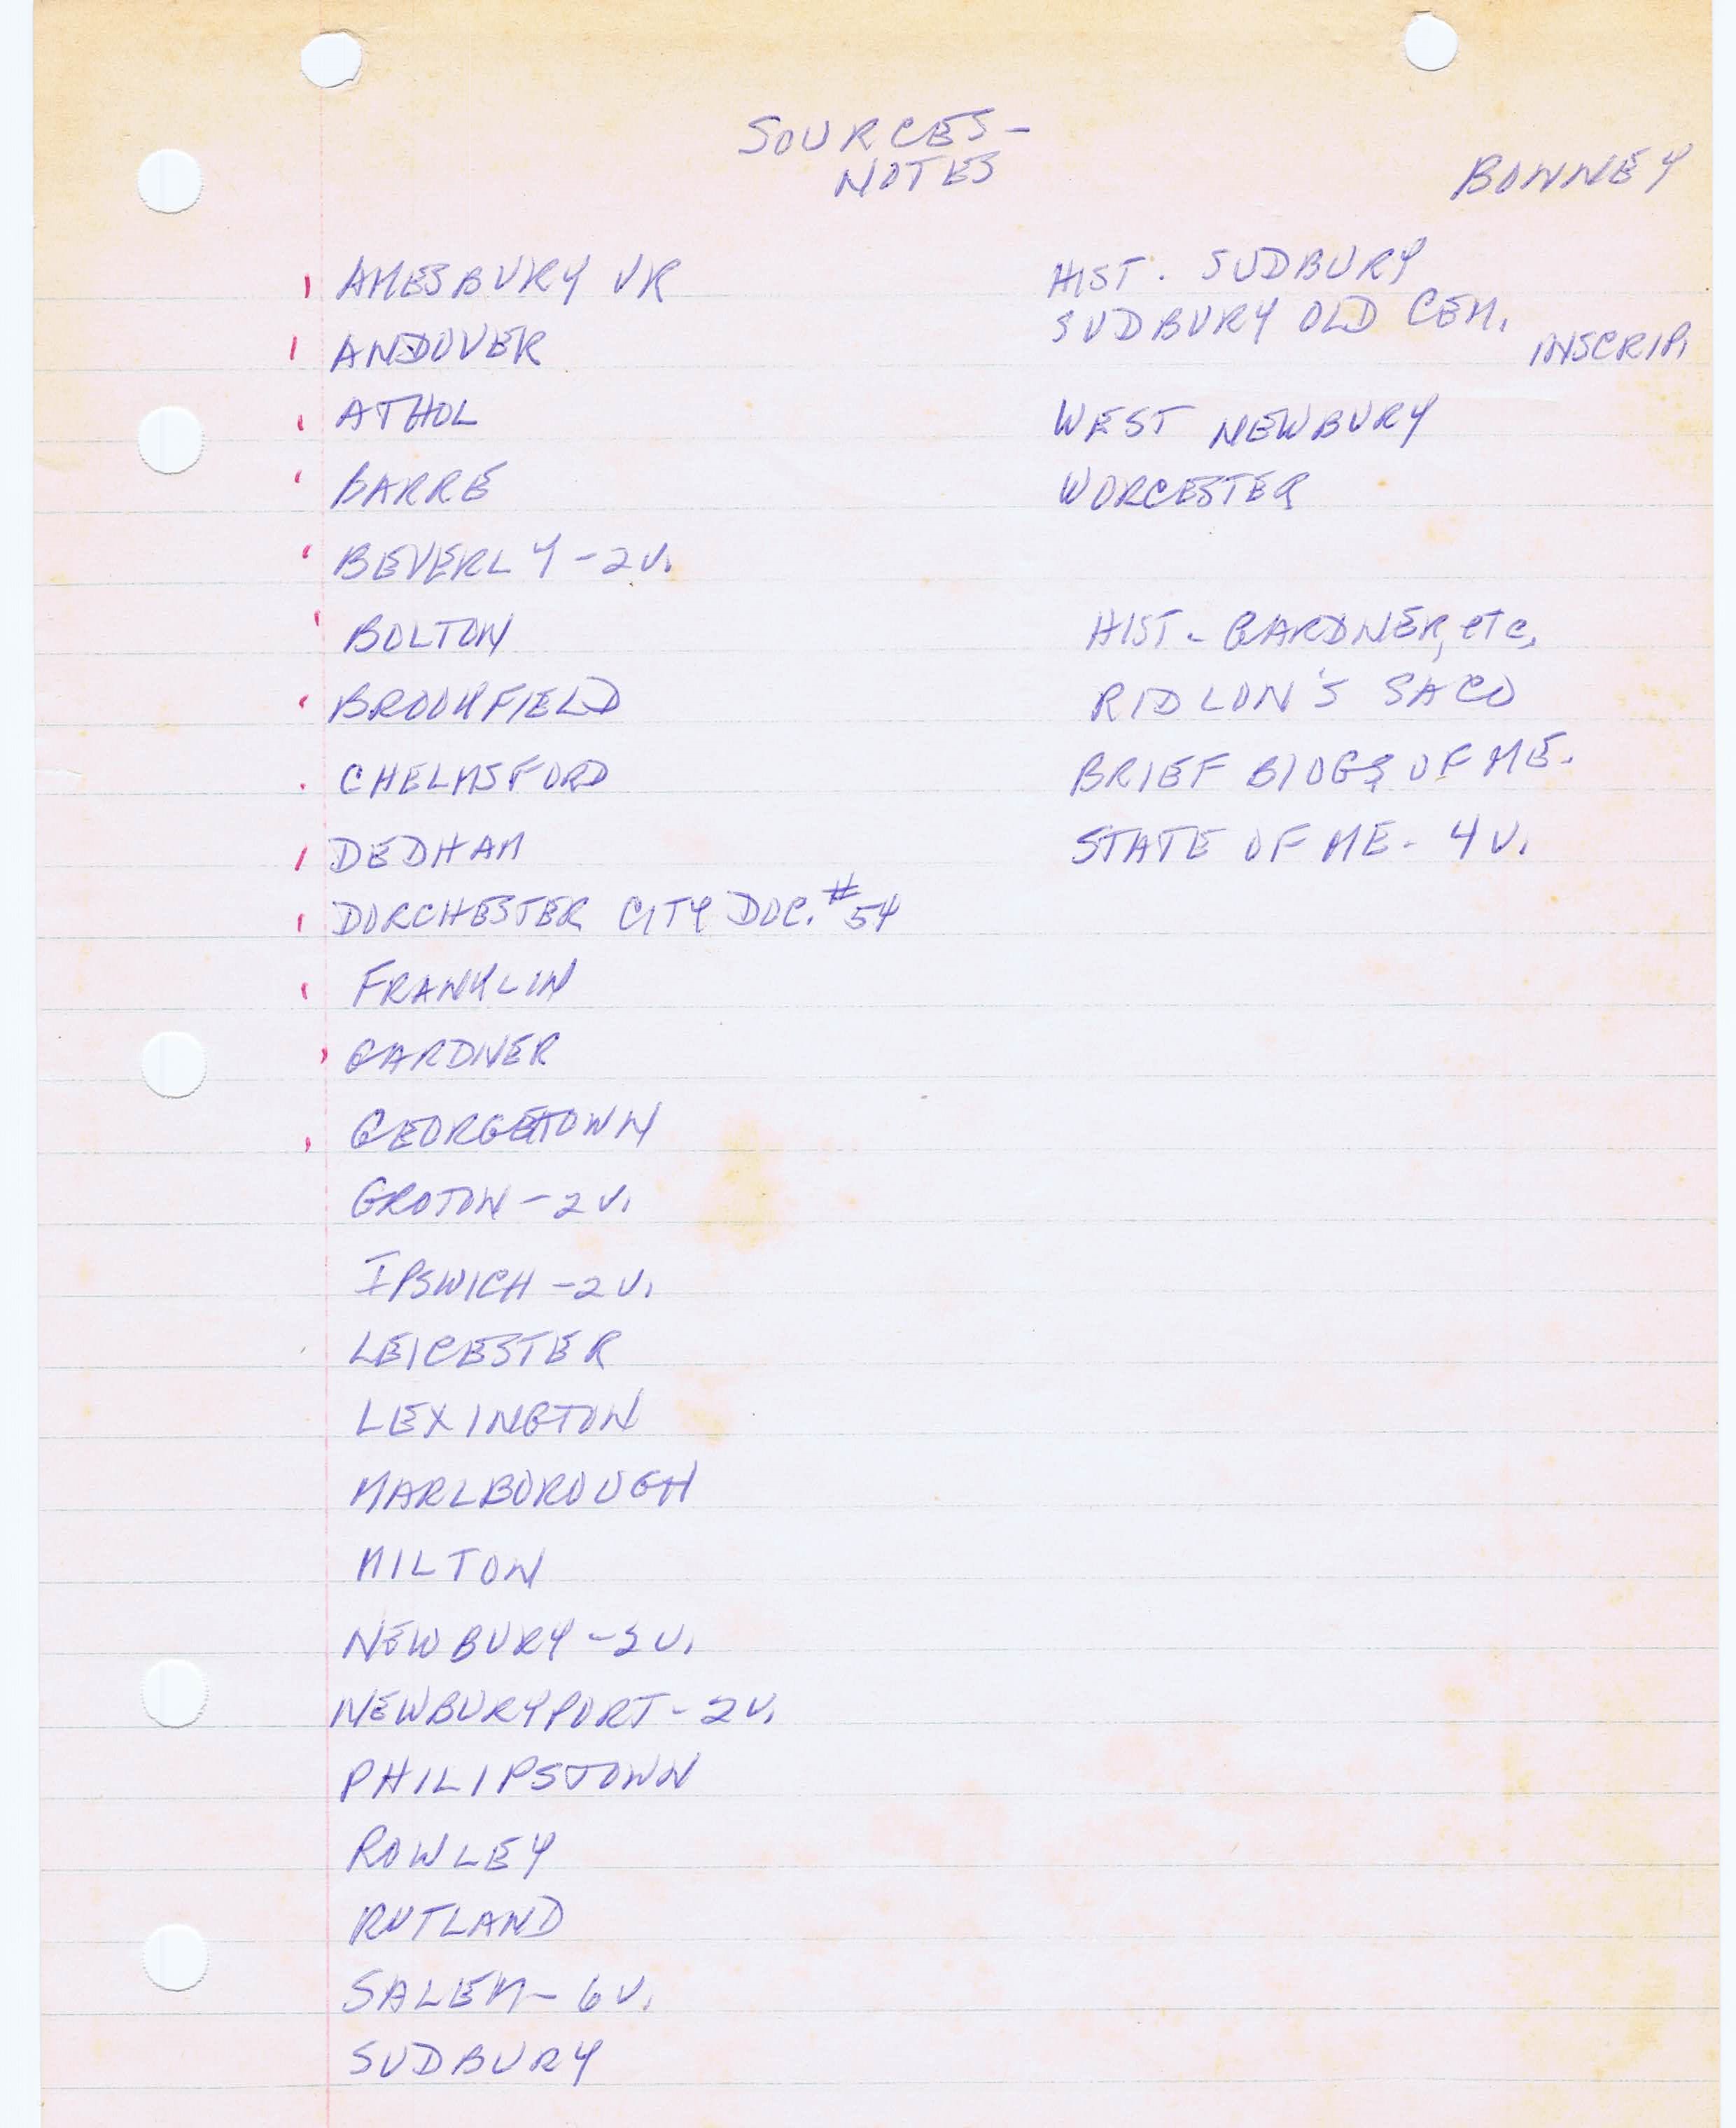 SOURCES -
NOTES
BONNEY
AMESBURY VR
ANDOVER
ATHOL
BARRE
BEVERLY - 2 V.
BOLTON
BROOKFIELD
CHELMSFORD
DEDHAM
DORCHESTER CITY DOC. #54
FRANKLIN
GARDNER
GEORGETOWN
GROTON - 2 V.
IPSWICH - 2 V.
LEICESTER
LEXINGTON
MARLBOROUGH
MILTON
NEWBURY - 2 V.
NEWBURYPORT - 2 V.
PHILIPSTOWN
ROWLEY
RUTLAND
SALEM - 6 V.
SUDBURY
HIST. SUDBURY
SUDBURY OLD CEM.
INSCRIP.
WEST NEWBURY
WORCESTER
HIST - GARDNER, etc.
RIDLON'S SACO
BRIEF BIOGS OF ME.
STATE OF ME - 4 V.